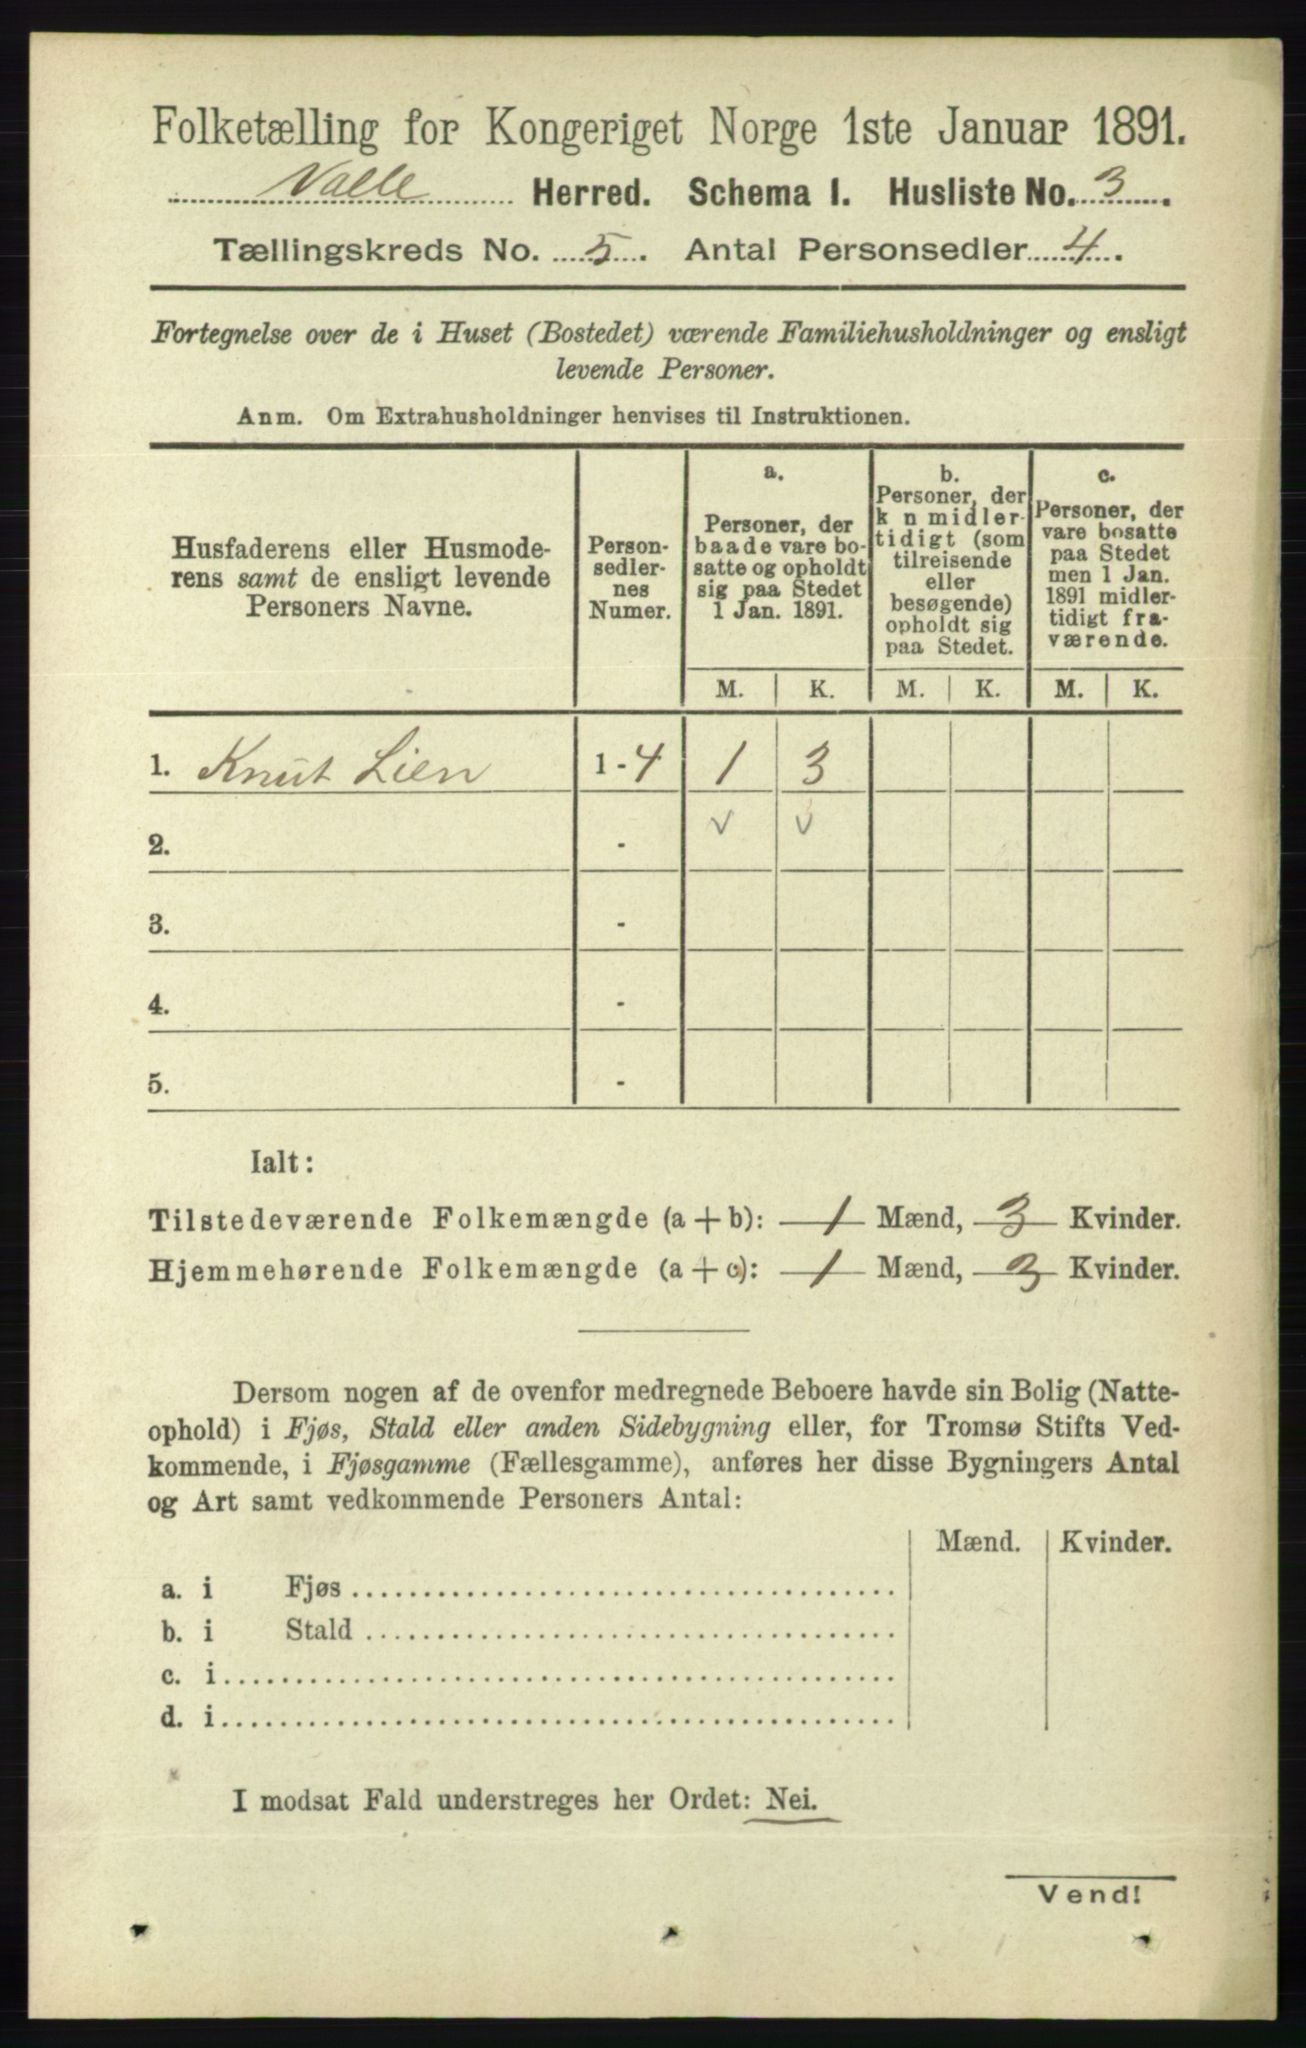 Folketælling for Kongeriget Norge 1ste Januar 1891.
Valle Herred. Schema I. Husliste No. 3.
Tællingskreds No. 5. Antal Personsedler 4.
Fortegnelse over de i Huset (Bostedet) værende Familiehusholdninger og ensligt
levende Personer.
Anm. Om Extrahusholdninger henvises til Instruktionen.
Husfaderens eller Husmode-
rens samt de ensligt levende
Personers Navne.
Person-
sedler-
nes
Numer.
a.
Personer, der
baade vare bo-
satte og opholdt
sig paa Stedet
1 Jan. 1891.
b.
Personer, der
k n midler-
tidigt (som
tilreisende
eller
besøgende)
opholdt sig
paa Stedet.
c.
Personer, der
vare bosatte
paa Stedet
men 1 Jan.
1891 midler-
tidigt fra-
værende.
M. K. M. K. M. K.
1. Knut Lien 1-4 1 3
2. - v v
3. -
4. -
5. -
Ialt:
Tilstedeværende Folkemængde (a + b): 1 Mænd, 3 Kvinder.
Hjemmehørende Folkemængde (a + c): 1 Mænd, 3 Kvinder.
Dersom nogen af de ovenfor medregnede Beboere havde sin Bolig (Natte-
ophold) i Fjøs, Stald eller anden Sidebygning eller, for Tromsø Stifts Ved-
kommende, i Fjøsgamme (Fællesgamme), anføres her disse Bygningers Antal
og Art samt vedkommende Personers Antal:
Mænd. Kvinder.
a. i Fjøs
b. i Stald
c. i
d. i
I modsat Fald understreges her Ordet: Nei.
Vend!